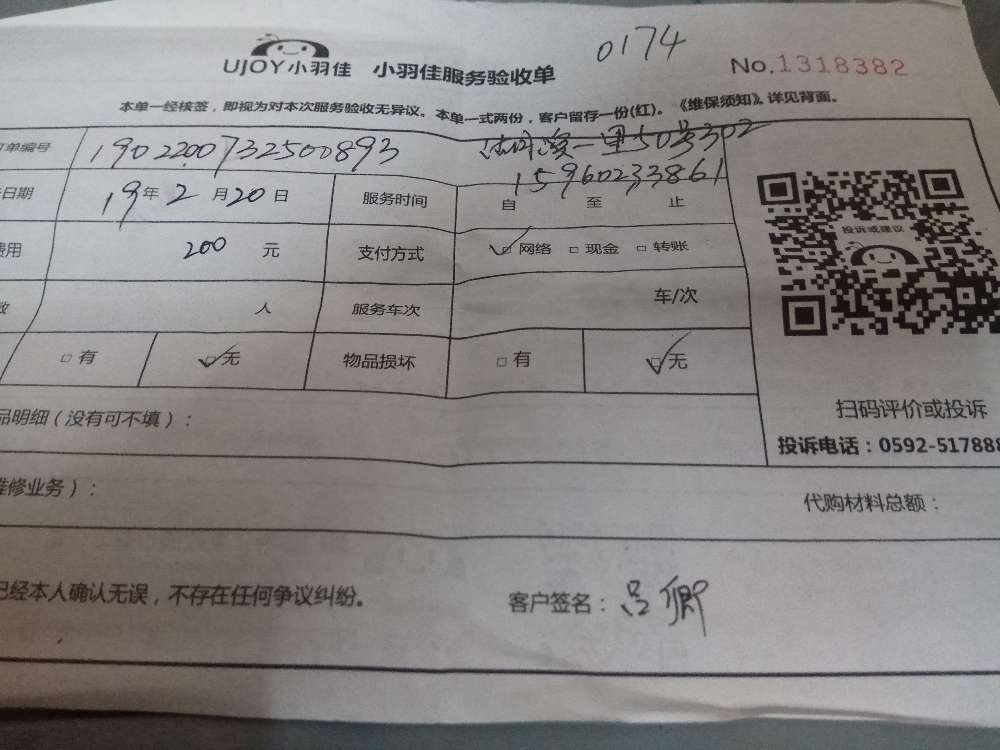 0174
UJOY小羽佳 小羽佳服务验收单 No.1318382
本单一经核签，即视为对本次服务验收无异议。本单一式两份，客户留存一份(红)。《维保须知》详见背面。
单编号 1902200732500893 一里50号302
15960233861
日期 19年2月20日 服务时间 自 至 止
费用 200 元 支付方式 ☑网络 □现金 □转账
人 服务车次 车/次
□有 ☑无 物品损坏 □有 ☑无
投诉或建议
扫码评价或投诉
品明细（没有可不填）：
投诉电话：0592-517888
维修业务）：
代购材料总额：
已经本人确认无误，不存在任何争议纠纷。
客户签名：吕卿